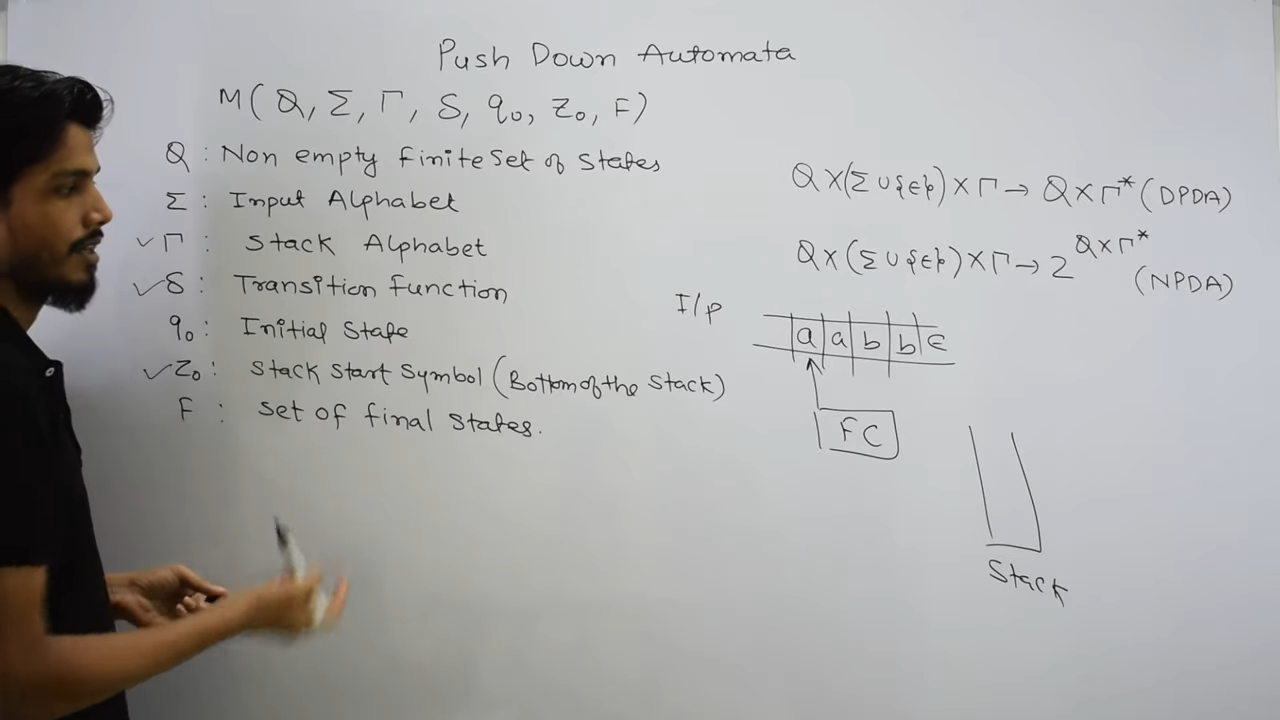 Push Down Automata
M( Q, Σ, Γ, δ, q₀, Z₀, F)
Q : Non empty finite set of states
Σ : Input Alphabet
✓ Γ : Stack Alphabet
✓ δ : Transition function
q₀ : Initial State
✓ Z₀ : Stack Start Symbol (Bottom of the Stack)
F : set of final states.
Q X (Σ ∪ {ϵ}) X Γ → Q X Γ* (DPDA)
Q X (Σ ∪ {ϵ}) X Γ → 2^(Q X Γ*)
(NPDA)
I/p
a a b b ϵ
FC
Stack